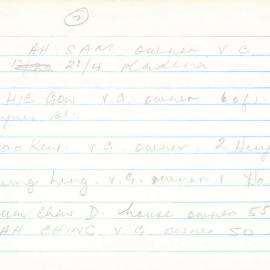 2
AH SAM owner V.G.
21/4 Kadina
HIE Gow. V.G. owner 6 of 1
oo Kew. V.G. owner. 2 Henry
ung Ling. V.G. owner 1
Chew D. house owner 55
AH CHING. V.G owner 50